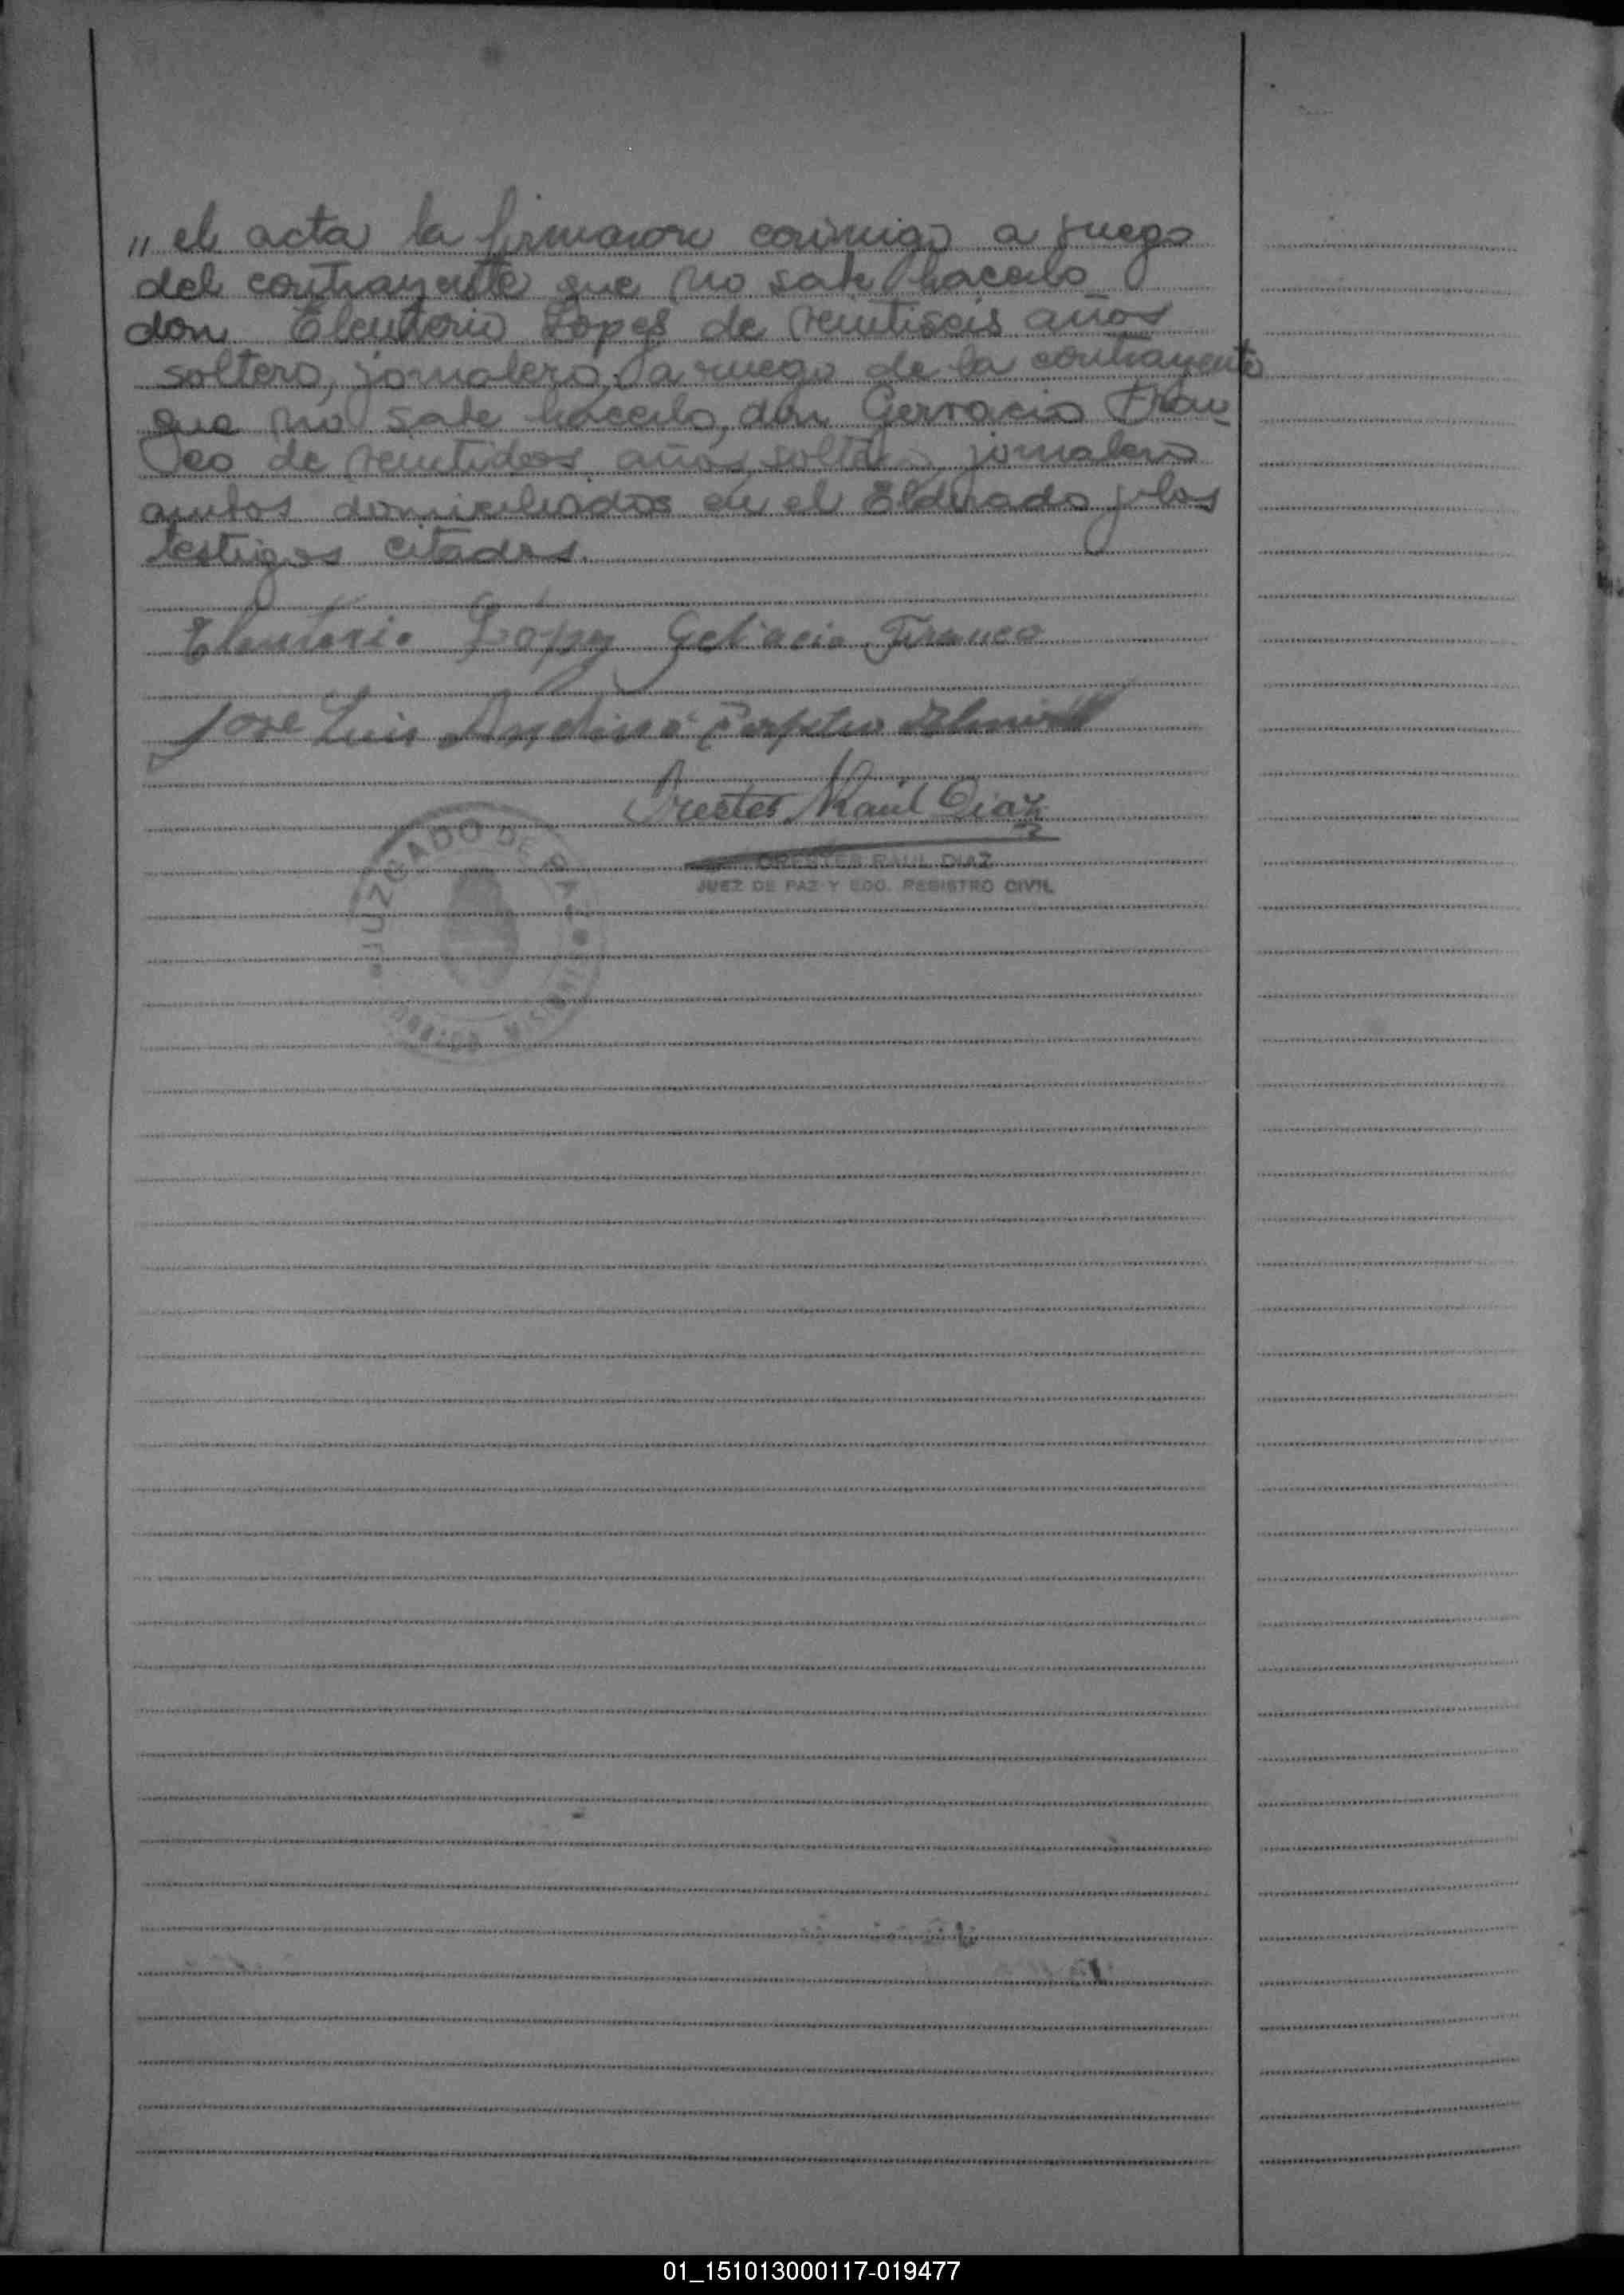 " el acta la firmaron conmigo a ruego
del contrayente que no sabe hacerlo
don Eleuterio Lopez de veintiseis años
soltero, jornalero, a ruego de la contrayente
que no sabe hacerlo, don Gervacio Fran-
co de veintidos años, soltero, jornalero
ambos domiciliados en el Eldorado y los
testigos citados.
Eleuterio Lopez Gervacio Franco
Jose Luis
Orestes Raúl Diaz
ORESTES RAUL DIAZ
JUEZ DE PAZ Y EDO. REGISTRO CIVIL
JUZGADO DE PAZ
MISIONES
01_151013000117-019477